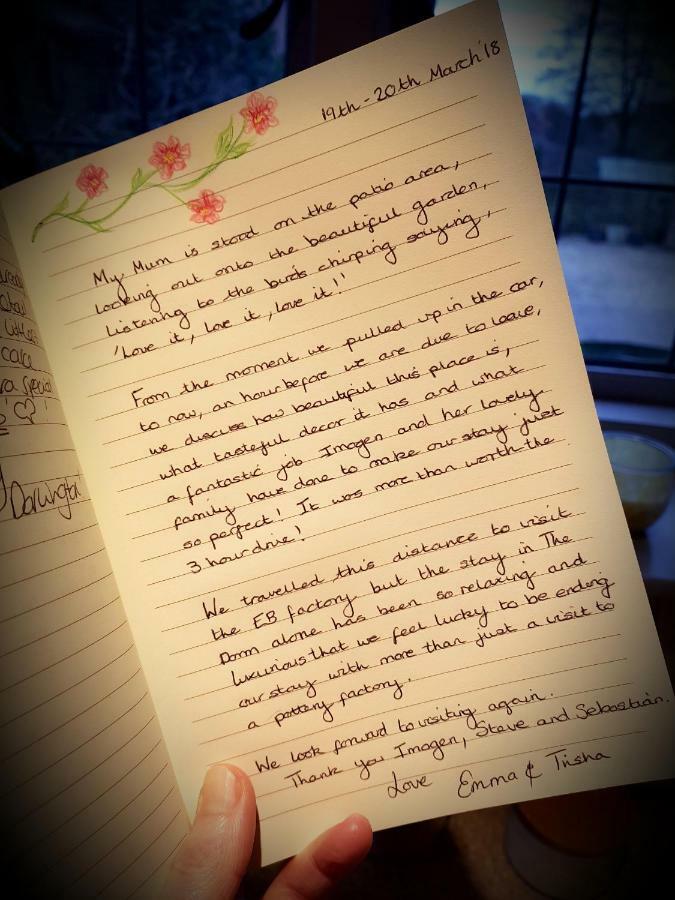 19th - 20th March '18
My Mum is stood on the patio area,
looking out onto the beautiful garden,
listening to the birds chirping saying,
'Love it, love it, love it!'
From the moment we pulled up in the car,
to now, an hour before we are due to leave,
we discuss how beautiful this place is,
what tasteful decor it has and what
a fantastic job Imogen and her lovely
family have done to make our stay just
so perfect! It was more than worth the
3 hour drive!
We travelled this distance to visit
the EB factory but the stay in The
alone has been so relaxing and
luxurious that we feel lucky to be ending
our stay with more than just a visit to
a pottery factory.
We look forward to visiting again.
Thank you Imogen, Steve and Sebastian.
Love Emma & Trisha
special
Darlington